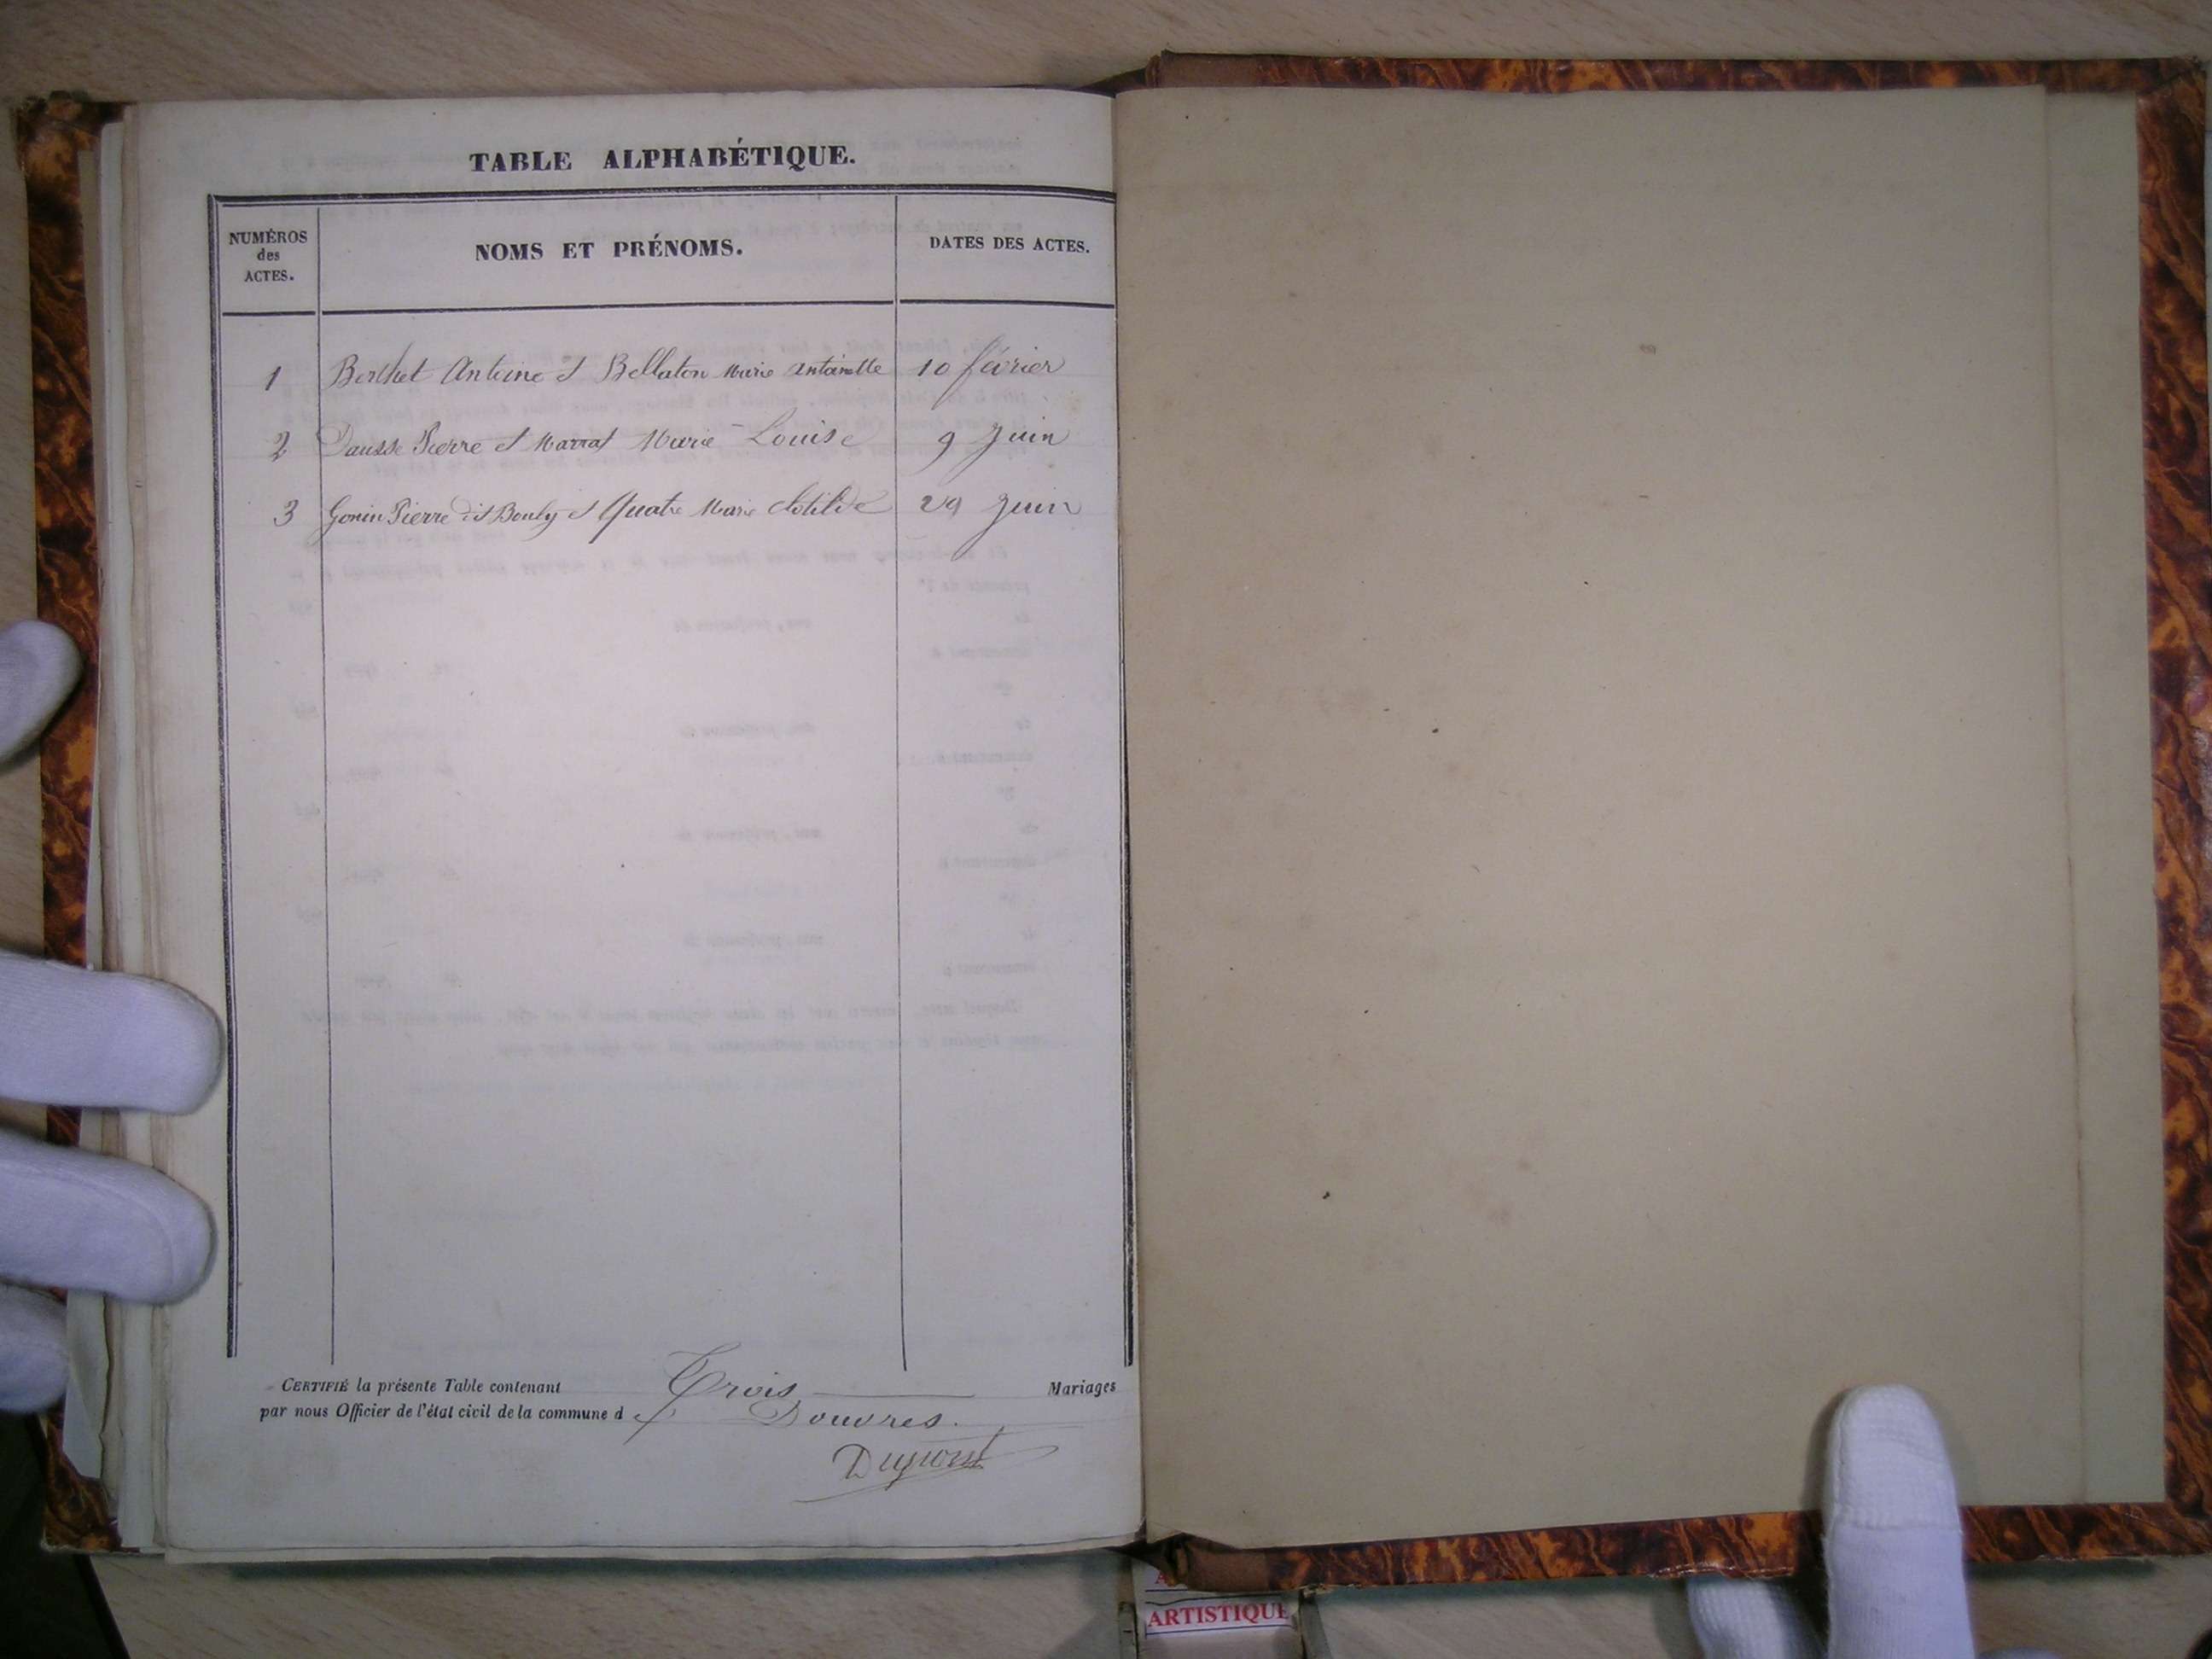 TABLE ALPHABÉTIQUE.
NUMÉROS
des
ACTES.
NOMS ET PRÉNOMS.
DATES DES ACTES.
1 Berthet Antoine et Bellaton Marie Antoinette 10 février
2 Dausse Pierre et Marrat Marie Louise 9 Juin
3 Gonin Pierre dit Bouly et Quatre Marie Clotilde 29 Juin
CERTIFIÉ la présente Table contenant Trois Mariages
par nous Officier de l'état civil de la commune d Douvres.
Dupont
ARTISTIQUE